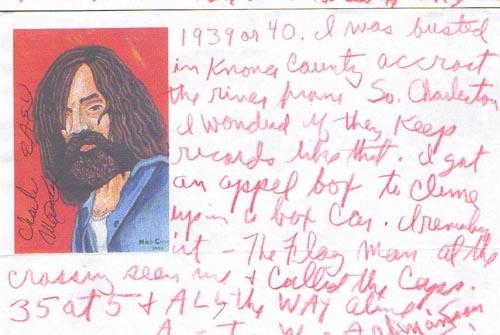 1939 or 40. I was busted
in Knonea County accrost
the river from So. Charleston
I Wonded if they Keep
records like that. I got
an appel box to clime
up in a box car. I remeber
it The Flag Man at the
crossing seen me + Called the Cops.
35 at 5 + ALL the WAY